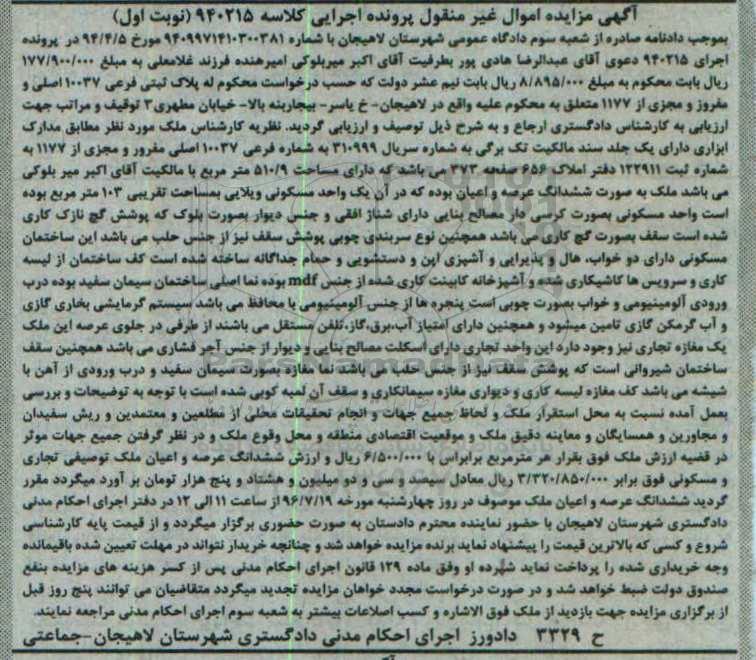 آگهی مزایده اموال غیر منقول پرونده اجرایی کلاسه ۹۴۰۲۱۵ (نوبت اول)
بموجب دادنامه صادره از شعبه سوم دادگاه عمومی شهرستان لاهیجان با شماره ۹۴۰۹۹۷۱۴۱۰۳۰۰۳۸۱ مورخ ۹۴/۴/۵ در پرونده
اجرای ۹۴۰۲۱۵ دعوی آقای عبدالرضا هادی پور بطرفیت آقای اکبر میربلوکی امیرهنده فرزند غلامعلی به مبلغ ۱۷۷/۹۰۰/۰۰۰
ریال بابت محکوم به مبلغ ۸/۸۹۵/۰۰۰ ریال بابت نیم عشر دولت که حسب درخواست محکوم له پلاک ثبتی فرعی ۱۰۰۳۷ اصلی و
مفروز و مجزی از ۱۱۷۷ متعلق به محکوم علیه واقع در لاهیجان- خ یاسر- بیجاربنه بالا- خیابان مطهری۳ توقیف و مراتب جهت
ارزیابی به کارشناس دادگستری ارجاع و به شرح ذیل توصیف و ارزیابی گردید. نظریه کارشناس ملک مورد نظر مطابق مدارک
ابرازی دارای یک جلد سند مالکیت تک برگی به شماره سریال ۳۱۰۹۹۹ به شماره فرعی ۱۰۰۳۷ اصلی مفروز و مجزی از ۱۱۷۷ به
شماره ثبت ۱۲۲۹۱۱ دفتر املاک ۶۵۶ صفحه ۳۷۳ می باشد که دارای مساحت ۵۱۰/۹ متر مربع با مالکیت آقای اکبر میر بلوکی
می باشد ملک به صورت ششدانگ عرصه و اعیان بوده که در آن یک واحد مسکونی ویلایی بمساحت تقریبی ۱۰۳ متر مربع بوده
است واحد مسکونی بصورت کرسی دار مصالح بنایی دارای شناژ افقی و جنس دیوار بصورت بلوک که پوشش گچ نازک کاری
شده است سقف بصورت گچ کاری می باشد همچنین نوع سربندی چوبی پوشش سقف نیز از جنس حلب می باشد این ساختمان
مسکونی دارای دو خواب، هال و پذیرایی و آشپزی اپن و دستشویی و حمام جداگانه ساخته شده است کف ساختمان از لیسه
کاری و سرویس ها کاشیکاری شده و آشپزخانه کابینت کاری شده از جنس mdf بوده نما اصلی ساختمان سیمان سفید بوده درب
ورودی آلومینیومی و خواب بصورت چوبی است پنجره ها از جنس آلومینیومی با محافظ می باشد سیستم گرمایشی بخاری گازی
و آب گرمکن گازی تامین میشود و همچنین دارای امتیاز آب،برق،گاز،تلفن مستقل می باشند از طرفی در جلوی عرصه این ملک
یک مغازه تجاری نیز وجود دارد این واحد تجاری دارای اسکلت مصالح بنایی و دیوار از جنس آجر فشاری می باشد همچنین سقف
ساختمان شیروانی است که پوشش سقف نیز از جنس حلب می باشد نما مغازه بصورت سیمان سفید و درب ورودی از آهن با
شیشه می باشد کف مغازه لیسه کاری و دیواری مغازه سیمانکاری و سقف آن لمبه کوبی شده است با توجه به توضیحات و بررسی
بعمل آمده نسبت به محل استقرار ملک و لحاظ جمیع جهات و انجام تحقیقات محلی از مطلعین و معتمدین و ریش سفیدان
و مجاورین و همسایگان و معاینه دقیق ملک و موقعیت اقتصادی منطقه و محل وقوع ملک و در نظر گرفتن جمیع جهات موثر
در قضیه ارزش ملک فوق بقرار هر مترمربع برابراس با ۶/۵۰۰/۰۰۰ ریال و ارزش ششدانگ عرصه و اعیان ملک توصیفی تجاری
و مسکونی فوق برابر ۳/۳۲۰/۸۵۰/۰۰۰ ریال معادل سیصد و سی و دو میلیون و هشتاد و پنج هزار تومان بر آورد میگردد مقرر
گردید ششدانگ عرصه و اعیان ملک موصوف در روز چهارشنبه مورخه ۹۶/۷/۱۹ از ساعت ۱۱ الی ۱۲ در دفتر اجرای احکام مدنی
دادگستری شهرستان لاهیجان با حضور نماینده محترم دادستان به صورت حضوری برگزار میگردد و از قیمت پایه کارشناسی
شروع و کسی که بالاترین قیمت را پیشنهاد نماید برنده مزایده خواهد شد و چنانچه خریدار نتواند در مهلت تعیین شده باقیمانده
وجه خریداری شده را پرداخت نماید سپرده او وفق ماده ۱۲۹ قانون اجرای احکام مدنی پس از کسر هزینه های مزایده بنفع
صندوق دولت ضبط خواهد شد و در صورت درخواست مجدد خواهان مزایده تجدید میگردد متقاضیان می توانند پنج روز قبل
از برگزاری مزایده جهت بازدید از ملک فوق الاشاره و کسب اصلاعات بیشتر به شعبه سوم اجرای احکام مدنی مراجعه نمایند.
ح ۳۳۲۹ دادورز اجرای احکام مدنی دادگستری شهرستان لاهیجان-جماعتی